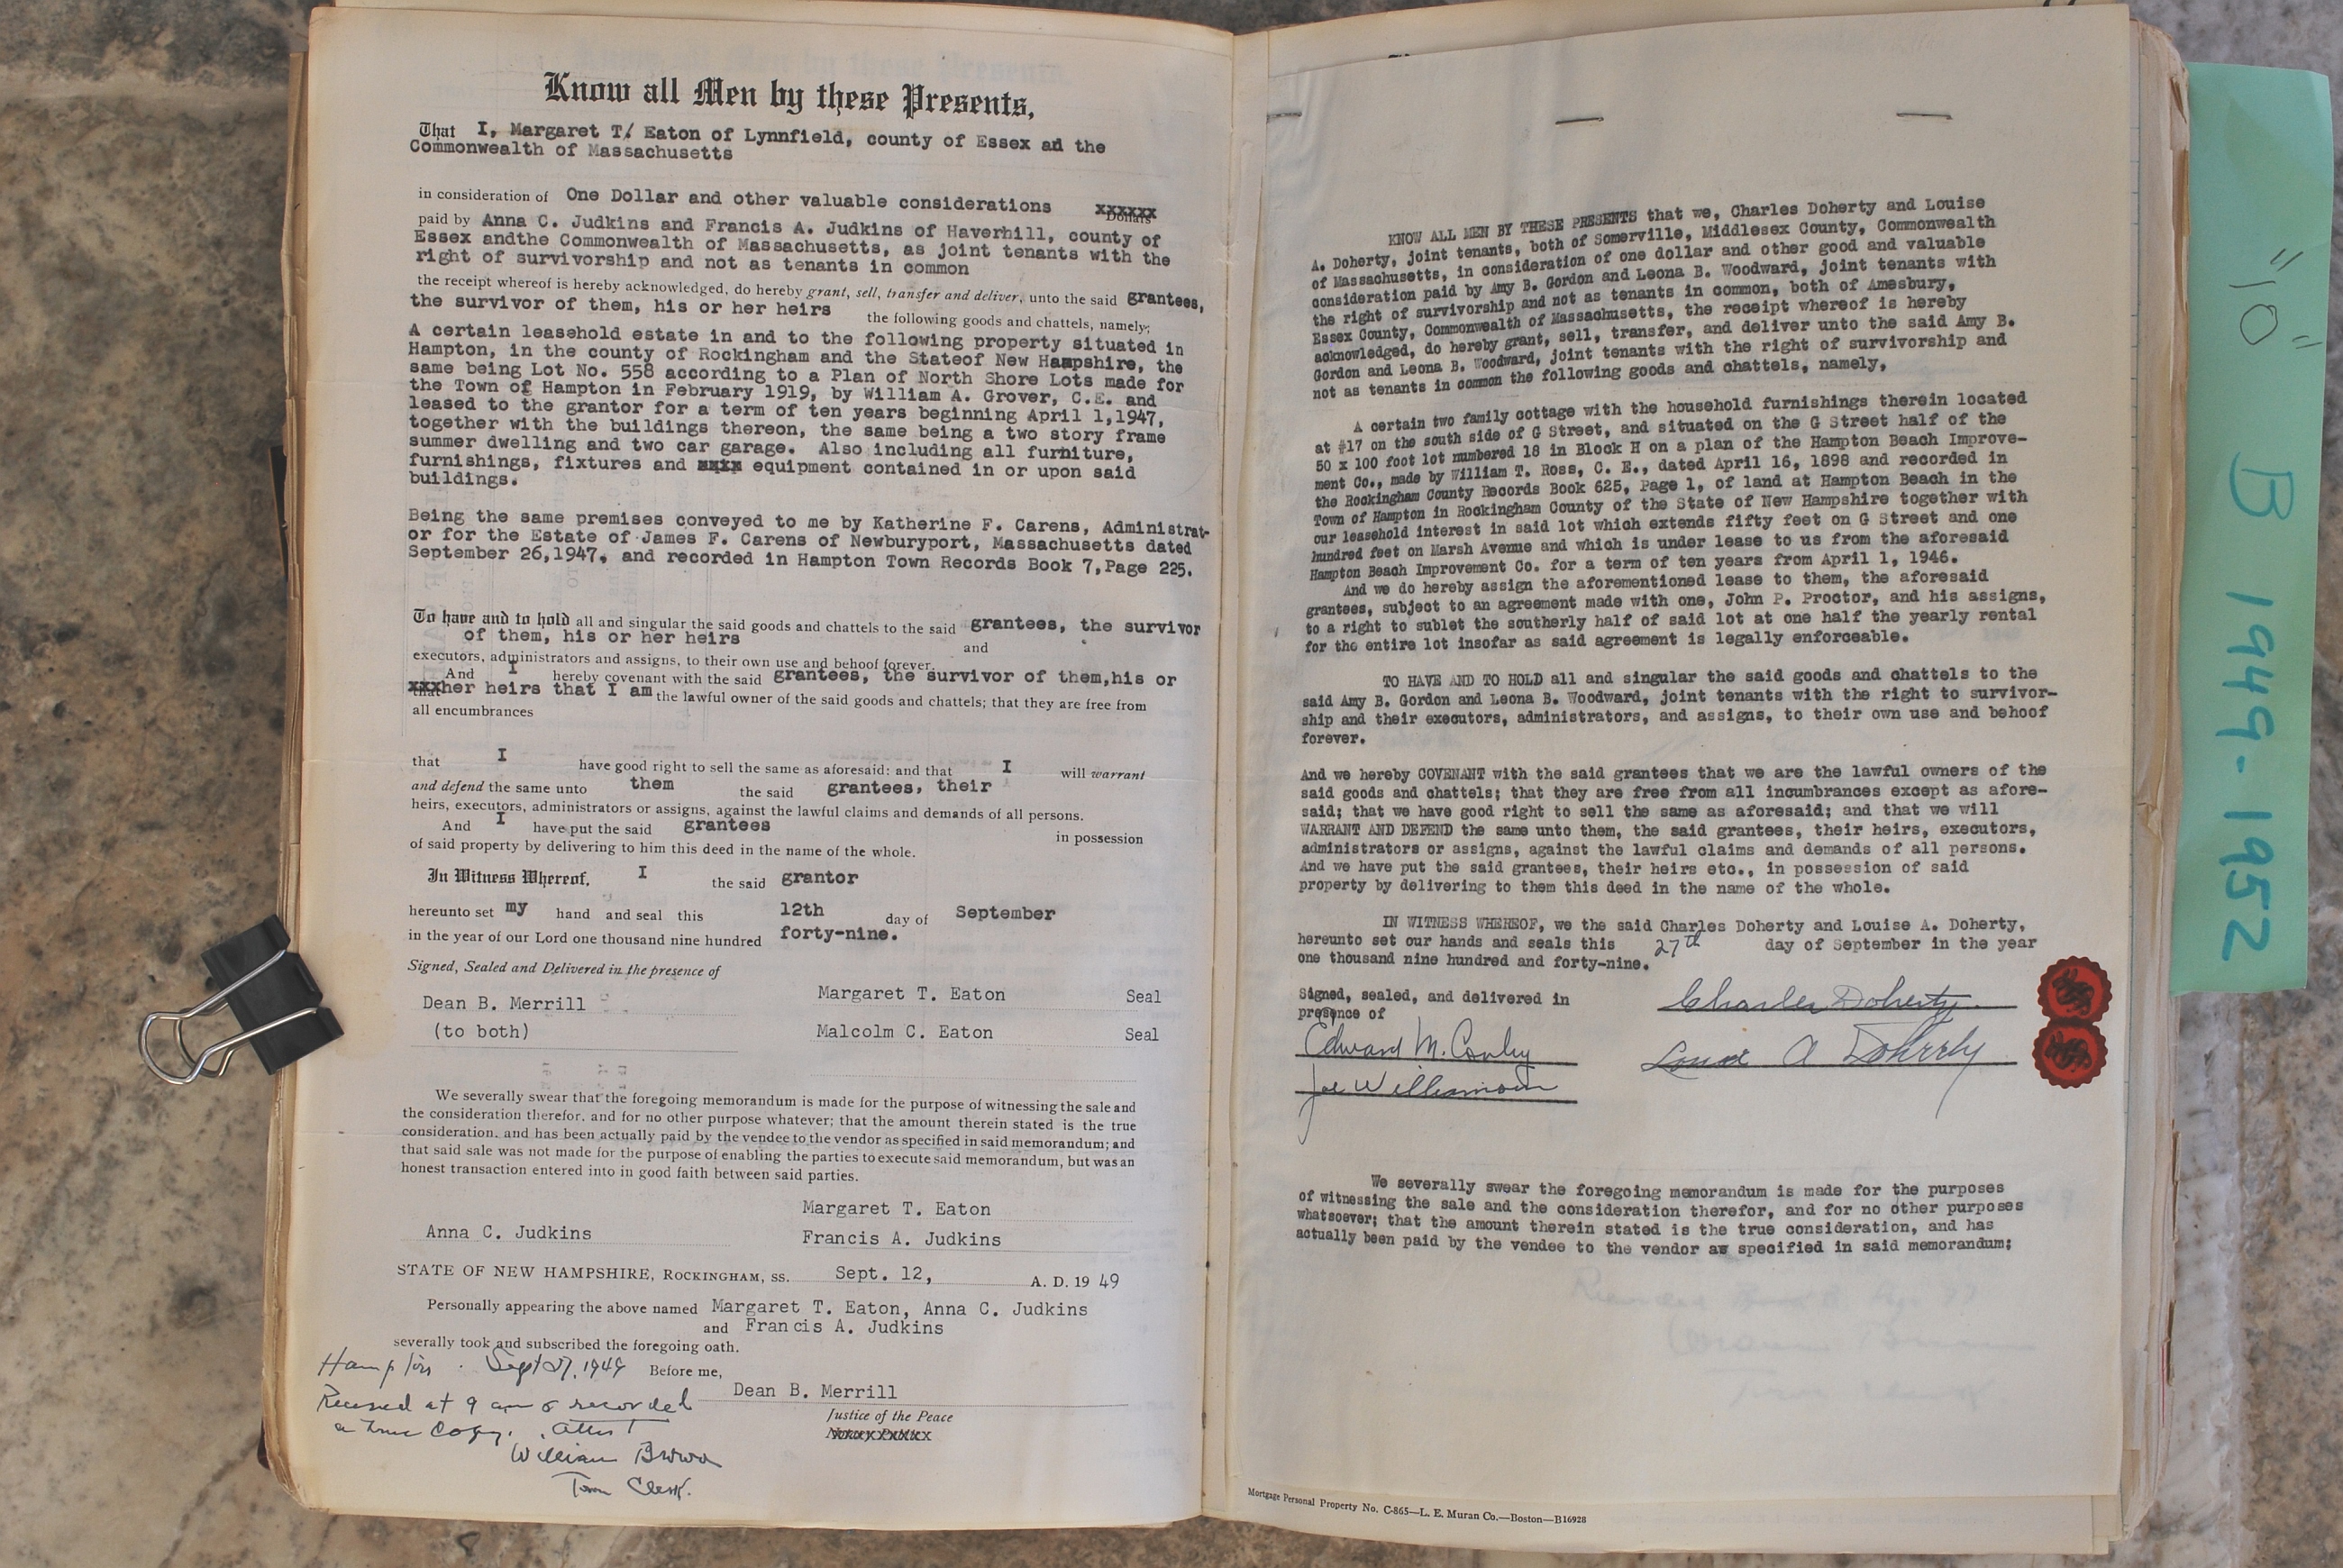 Know all Men by these Presents,
That I, Margaret T/ Eaton of Lynnfield, county of Essex ad the
Commonwealth of Massachusetts
in consideration of One Dollar and other valuable considerations xxxxxx Dollars
paid by Anna C. Judkins and Francis A. Judkins of Haverhill, county of
Essex andthe Commonwealth of Massachusetts, as joint tenants with the
right of survivorship and not as tenants in common
the receipt whereof is hereby acknowledged, do hereby grant, sell, transfer and deliver, unto the said grantees,
the survivor of them, his or her heirs the following goods and chattels, namely;
A certain leasehold estate in and to the following property situated in
Hampton, in the county of Rockingham and the Stateof New Hampshire, the
same being Lot No. 558 according to a Plan of North Shore Lots made for
the Town of Hampton in February 1919, by William A. Grover, C.E. and
leased to the grantor for a term of ten years beginning April 1,1947,
together with the buildings thereon, the same being a two story frame
summer dwelling and two car garage. Also including all furniture,
furnishings, fixtures and xxxx equipment contained in or upon said
buildings.
Being the same premises conveyed to me by Katherine F. Carens, Administrat-
or for the Estate of James F. Carens of Newburyport, Massachusetts dated
September 26,1947, and recorded in Hampton Town Records Book 7,Page 225.
To have and to hold all and singular the said goods and chattels to the said grantees, the survivor
of them, his or her heirs and
executors, administrators and assigns, to their own use and behoof forever.
And I hereby covenant with the said grantees, the survivor of them,his or
xxxher heirs that I am the lawful owner of the said goods and chattels; that they are free from
all encumbrances
that I have good right to sell the same as aforesaid: and that I will warrant
and defend the same unto them the said grantees, their
heirs, executors, administrators or assigns, against the lawful claims and demands of all persons.
And I have put the said grantees in possession
of said property by delivering to him this deed in the name of the whole.
In Witness Whereof, I the said grantor
hereunto set my hand and seal this 12th day of September
in the year of our Lord one thousand nine hundred forty-nine.
Signed, Sealed and Delivered in the presence of
Dean B. Merrill Margaret T. Eaton Seal
(to both) Malcolm C. Eaton Seal
We severally swear that the foregoing memorandum is made for the purpose of witnessing the sale and
the consideration therefor, and for no other purpose whatever; that the amount therein stated is the true
consideration, and has been actually paid by the vendee to the vendor as specified in said memorandum; and
that said sale was not made for the purpose of enabling the parties to execute said memorandum, but was an
honest transaction entered into in good faith between said parties.
Margaret T. Eaton
Anna C. Judkins Francis A. Judkins
STATE OF NEW HAMPSHIRE, ROCKINGHAM, SS. Sept. 12, A. D. 19 49
Personally appearing the above named Margaret T. Eaton, Anna C. Judkins
and Francis A. Judkins
severally took and subscribed the foregoing oath.
Hampton Sept 27, 1949 Before me,
Received at 9 am & recorded Dean B. Merrill
a true Copy. Attest Justice of the Peace
William Brown
Town Clerk.
KNOW ALL MEN BY THESE PRESENTS that we, Charles Doherty and Louise
A. Doherty, joint tenants, both of Somerville, Middlesex County, Commonwealth
of Massachusetts, in consideration of one dollar and other good and valuable
consideration paid by Amy B. Gordon and Leona B. Woodward, joint tenants with
the right of survivorship and not as tenants in common, both of Amesbury,
Essex County, Commonwealth of Massachusetts, the receipt whereof is hereby
acknowledged, do hereby grant, sell, transfer, and deliver unto the said Amy B.
Gordon and Leona B. Woodward, joint tenants with the right of survivorship and
not as tenants in common the following goods and chattels, namely,
A certain two family cottage with the household furnishings therein located
at #17 on the south side of G Street, and situated on the G Street half of the
50 x 100 foot lot numbered 18 in Block H on a plan of the Hampton Beach Improve-
ment Co., made by William T. Ross, C. E., dated April 16, 1898 and recorded in
the Rockingham County Records Book 625, Page 1, of land at Hampton Beach in the
Town of Hampton in Rockingham County of the State of New Hampshire together with
our leasehold interest in said lot which extends fifty feet on G Street and one
hundred feet on Marsh Avenue and which is under lease to us from the aforesaid
Hampton Beach Improvement Co. for a term of ten years from April 1, 1946.
And we do hereby assign the aforementioned lease to them, the aforesaid
grantees, subject to an agreement made with one, John P. Proctor, and his assigns,
to a right to sublet the southerly half of said lot at one half the yearly rental
for the entire lot insofar as said agreement is legally enforceable.
TO HAVE AND TO HOLD all and singular the said goods and chattels to the
said Amy B. Gordon and Leona B. Woodward, joint tenants with the right to survivor-
ship and their executors, administrators, and assigns, to their own use and behoof
forever.
And we hereby COVENANT with the said grantees that we are the lawful owners of the
said goods and chattels; that they are free from all incumbrances except as afore-
said; that we have good right to sell the same as aforesaid; and that we will
WARRANT AND DEFEND the same unto them, the said grantees, their heirs, executors,
administrators or assigns, against the lawful claims and demands of all persons.
And we have put the said grantees, their heirs etc., in possession of said
property by delivering to them this deed in the name of the whole.
IN WITNESS WHEREOF, we the said Charles Doherty and Louise A. Doherty,
hereunto set our hands and seals this 27th day of September in the year
one thousand nine hundred and forty-nine.
Signed, sealed, and delivered in Charles Doherty
presence of
Edward M. Conley Louise A Doherty
Joe Williamson
We severally swear the foregoing memorandum is made for the purposes
of witnessing the sale and the consideration therefor, and for no other purposes
whatsoever; that the amount therein stated is the true consideration, and has
actually been paid by the vendee to the vendor as specified in said memorandum;
Mortgage Personal Property No. C-865—L. E. Muran Co.—Boston—B16928
"10" B 1949-1952